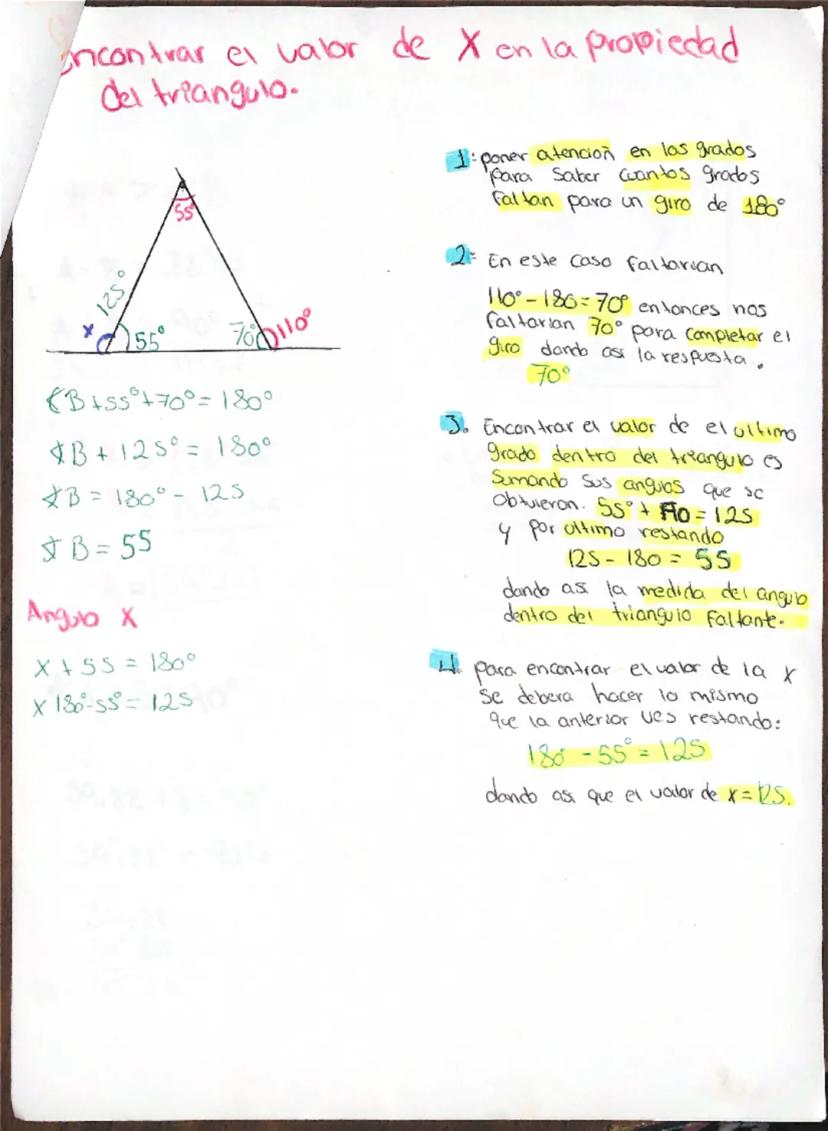 encontrar el valor de X en la propiedad
del triangulo.
55°
125°
x
55°
70°
110°
∡B+55°+70°= 180°
∡B + 125° = 180°
∡B = 180° - 125
∡B = 55
Angulo X
x + 55 = 180°
x 180°-55° = 125
1: poner atención en los grados
para saber cuantos grados
faltan para un giro de 180°
2: En este caso faltarian
110° - 180 = 70° entonces nos
faltarian 70° para completar el
giro dando asi la respuesta.
70°
3. Encontrar el valor de el ultimo
grado dentro del triangulo es
sumando sus angulos que se
obtuvieron. 55° + 70 = 125
y por ultimo restando
125 - 180 = 55
dando asi la medida del angulo
dentro del triangulo faltante.
4. para encontrar el valor de la x
se debera hacer lo mismo
que la anterior ves restando:
180 - 55° = 125
dando asi que el valor de x = 125.